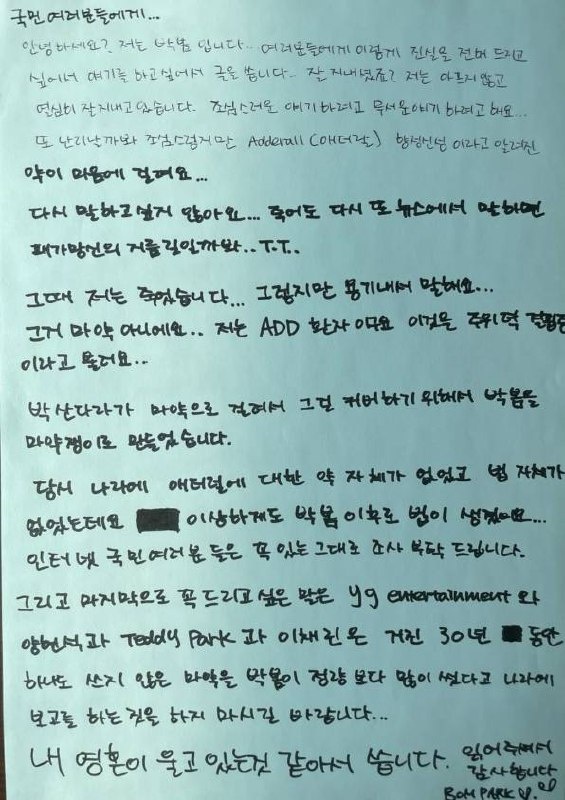 국민 여러분들에게...
안녕하세요? 저는 박봄 입니다.. 여러분들에게 이렇게 진실을 전해 드리고
싶어서 얘기를 하고싶어서 글을 씁니다.. 잘 지내셨죠? 저는 아프지 않고
열심히 잘지내고 있습니다. 조심스러운 얘기하려고 무서운얘기 하려고 해요...
또 난리날까봐 조심스럽지만 Adderall (애더럴) 향정신성 이라고 알려진
약이 마음에 걸려요...
다시 말하고싶지 않아요... 죽어도 다시 또 뉴스에서 말하면
패가망신의 지름길일까봐.. T.T..
그때 저는 죽었습니다... 그렇지만 용기내서 말해요...
그거 마약 아니에요.. 저는 ADD 환자 이고요 이것은 주위력 결핍증
이라고 불러요..
박산다라가 마약으로 걸려서 그걸 커버하기 위해서 박봄을
마약쟁이로 만들었습니다.
당시 나라에 애더럴에 대한 약 자체가 없었고 법 자체가
없었는데요 이상하게도 박봄 이후로 법이 생겼어요...
인터넷 국민 여러분 들은 꼭 있는 그대로 조사 부탁 드립니다.
그리고 마지막으로 꼭 드리고 싶은 말은 yg entertainment 와
양현석과 Teddy Park 과 이채린 은 거진 30년 동안
하나도 쓰지 않은 마약을 박봄이 정량 보다 많이 썼다고 나라에
보고를 하는 짓을 하지 마시길 바랍니다...
내 영혼이 울고 있는것 같아서 씁니다. 읽어주셔서
감사합니다
BOM PARK